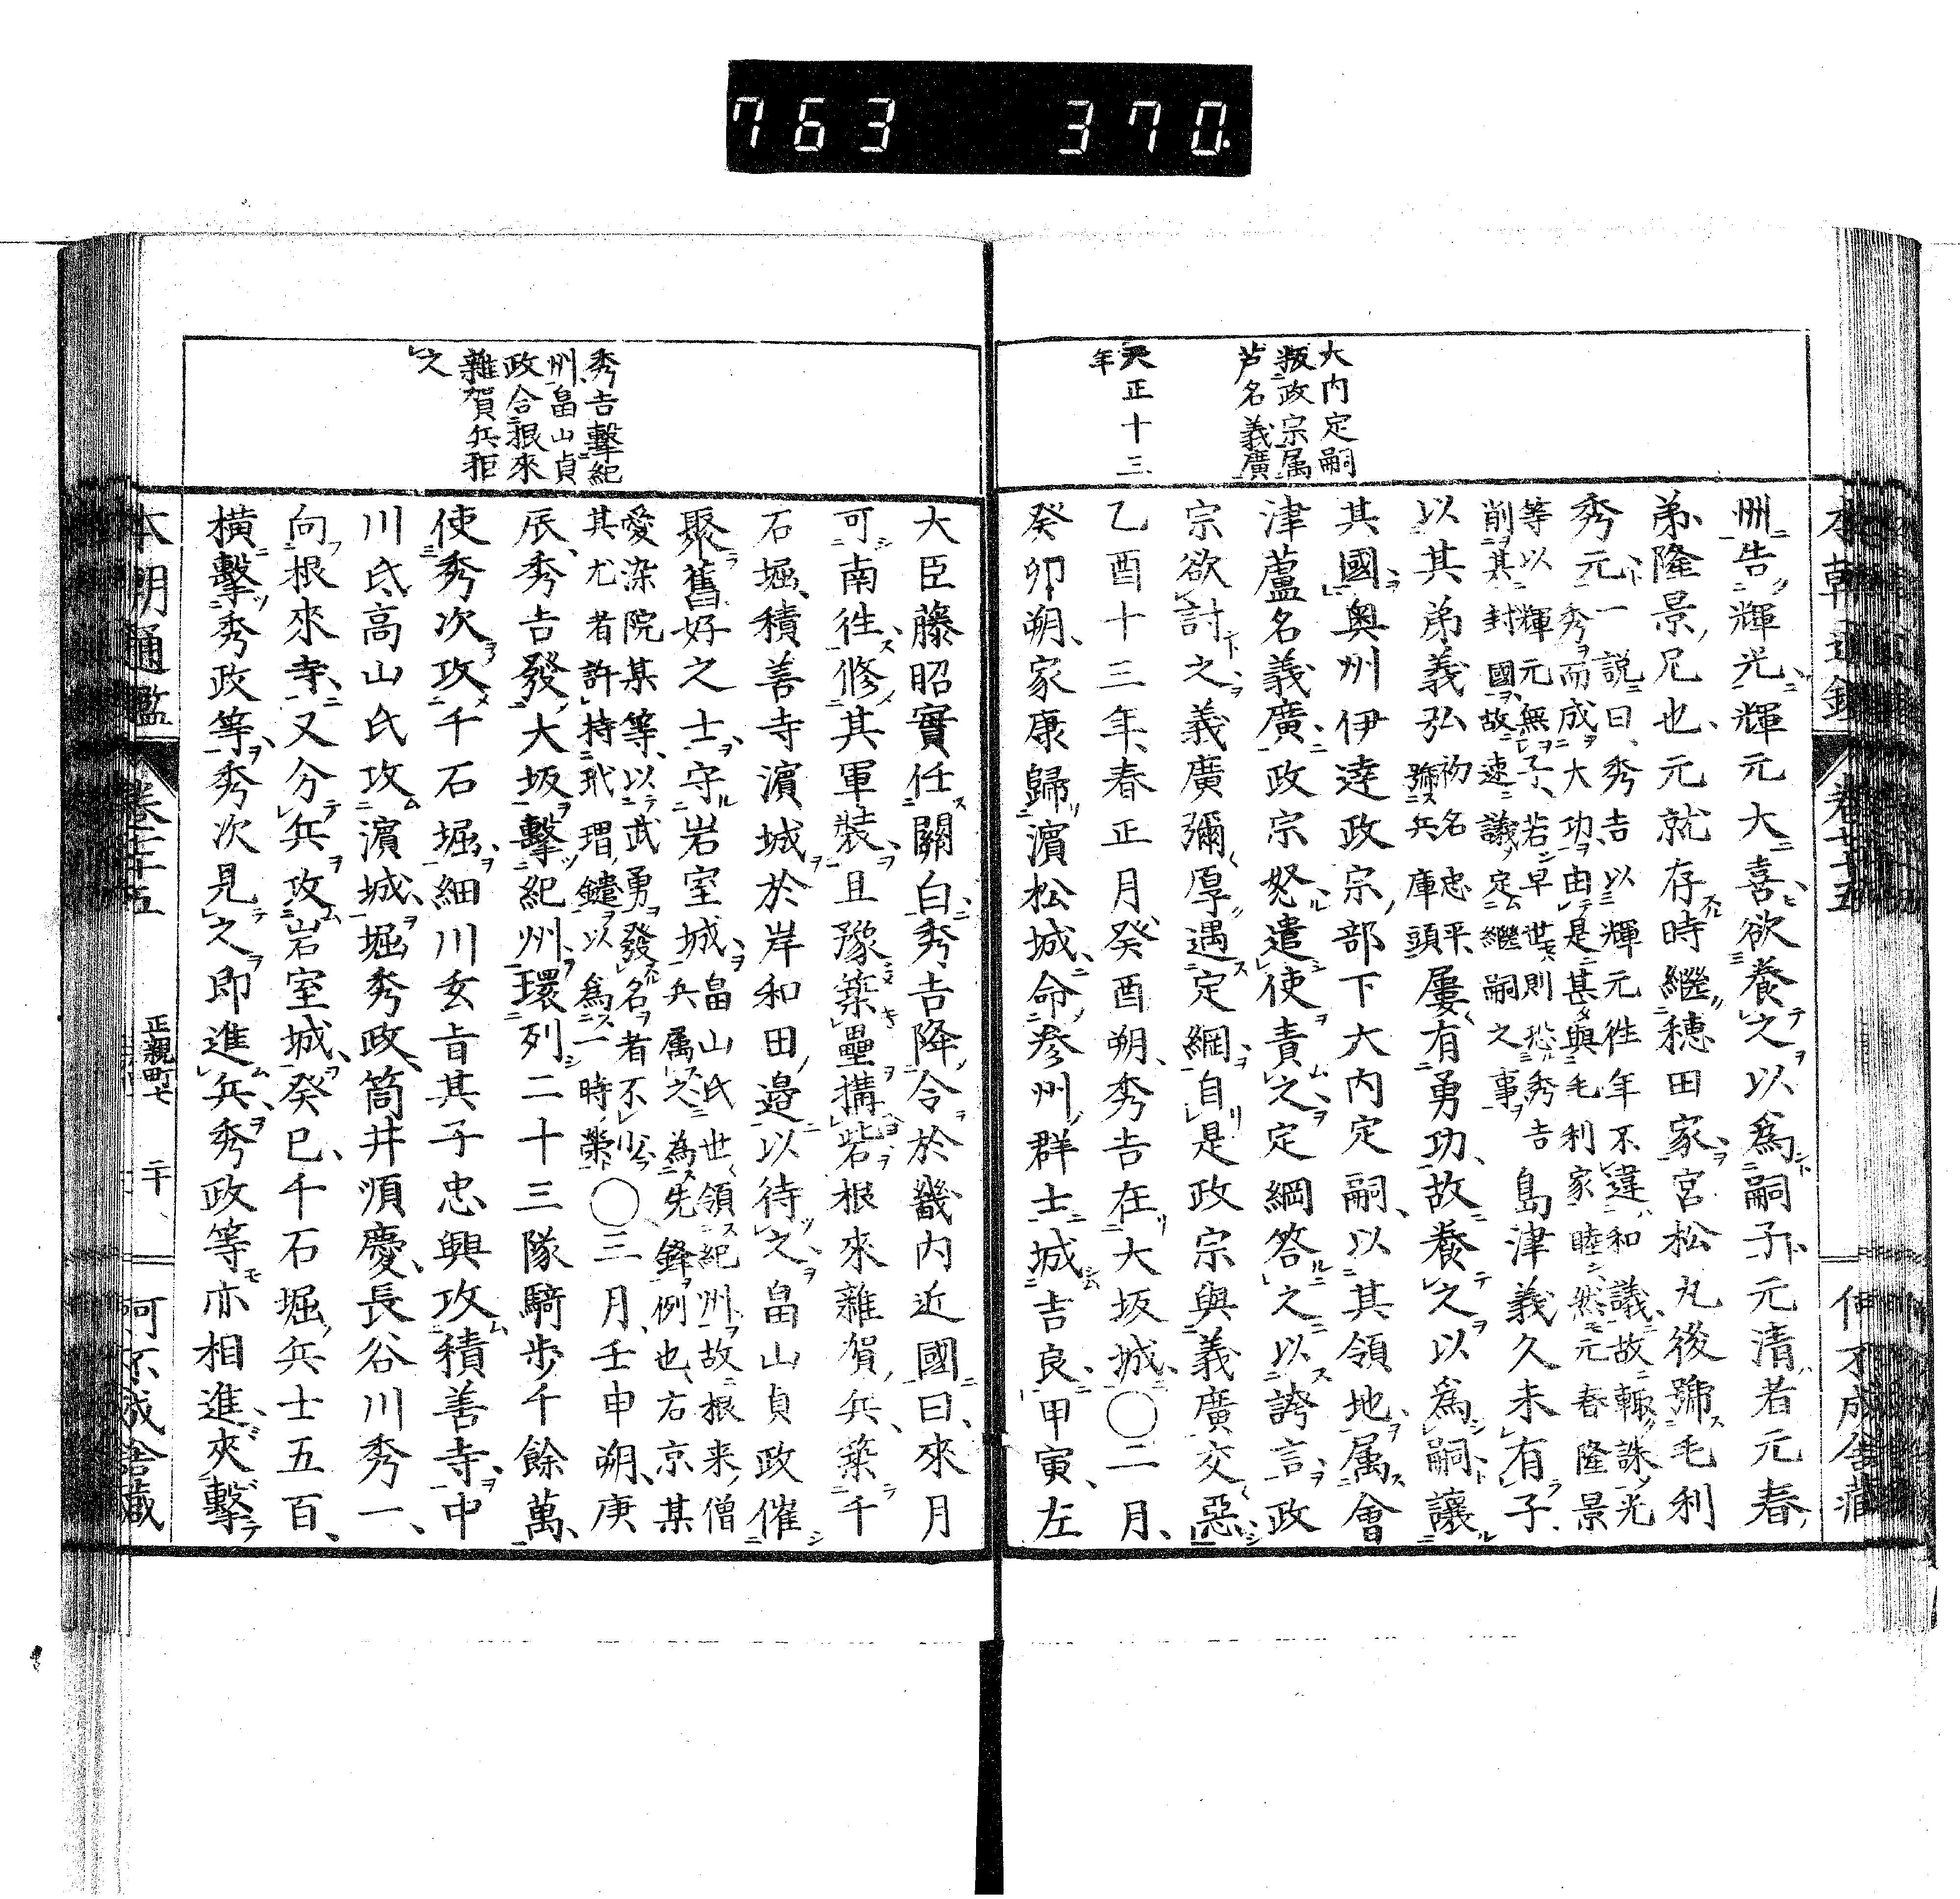 763 370
大内定嗣
叛政宗属
芦名義廣
天正十三
年
州告輝元輝元大喜欲養之以爲嗣子元清者元春
弟隆景兄也元就存時繼穗田家宮松丸後號毛利
秀元一說曰秀吉以輝元徃年不違和議故輙誅光
秀而成大功由是甚與毛利家睦然元春隆景
等以輝元無子若早世則恐秀吉
削其封國故速議定繼嗣之事
島津義久未有子
以其弟義弘初名忠平
號兵庫頭
屢有勇功故養之以爲嗣讓
其國奥州伊達政宗部下大内定嗣以其領地属會
津蘆名義廣政宗怒遣使責之定綱答之以誇言政
宗欲討之義廣彌厚遇定綱自是政宗與義廣交惡
乙酉十三年春正月癸酉朔秀吉在大坂城〇二月
癸卯朔家康歸濵松城命參州群士城吉良甲寅左
秀吉擊紀
州畠山貞
政合根來
雜賀兵拒
之
大臣藤昭實任關白秀吉降令於畿内近國曰來月
可南徃修其軍裝且豫築壘構砦根來雜賀兵築千
石堀積善寺濵城於岸和田邉以待之畠山貞政催
聚舊好之士守岩室城畠山氏世領紀州故根来僧
兵属之為先鋒例也右京某
愛染院某等以武勇發名者不少
其尤者許持玳瑁鑓以為一時榮
〇三月壬申朔庚
辰秀吉發大坂擊紀州環列二十三隊騎步千餘萬
使秀次攻千石堀細川玄旨其子忠興攻積善寺中
川氏高山氏攻濵城堀秀政筒井順慶長谷川秀一
向根來寺又分兵攻岩室城癸巳千石堀兵士五百
橫擊秀政等秀次見之即進兵秀政等亦相進夾擊
本朝通鑑
卷七十五
正親町七
二十